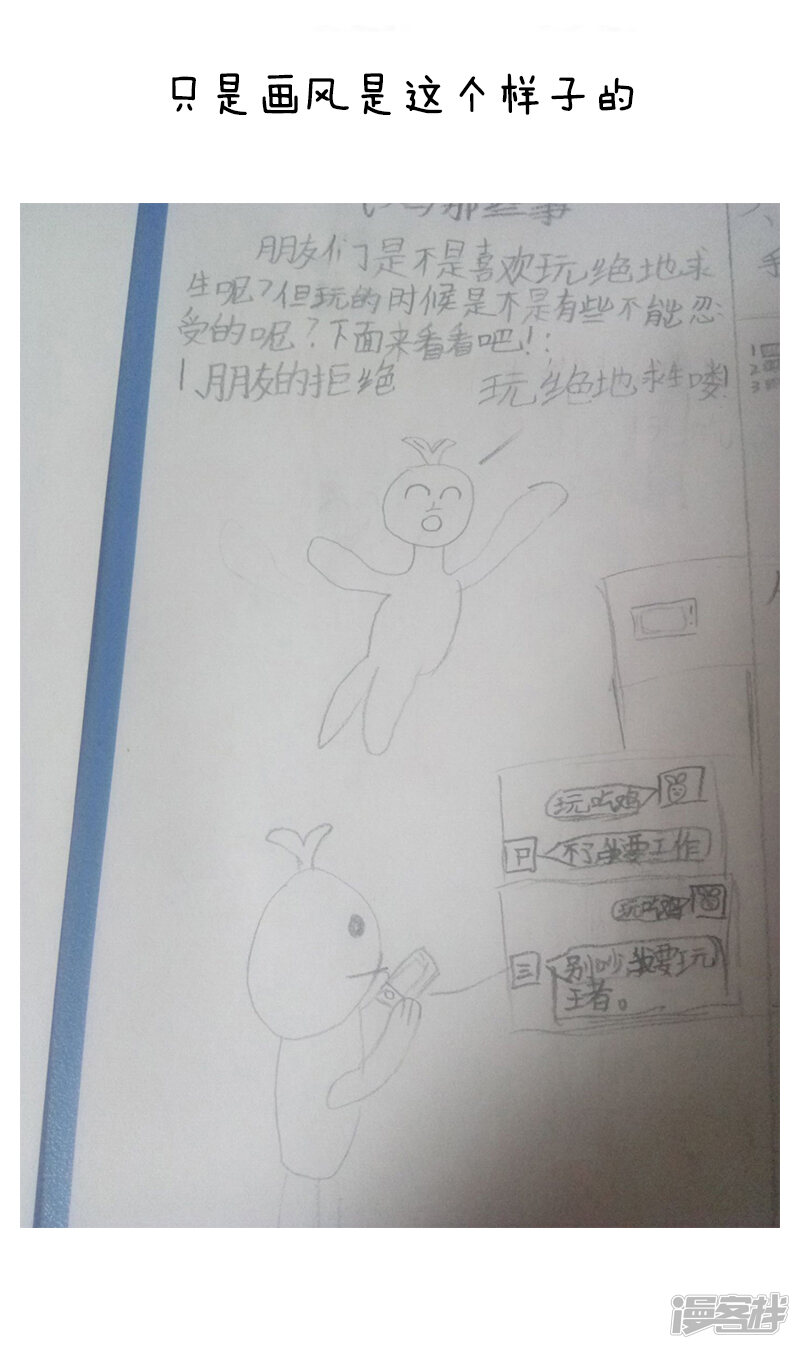 只是画风是这个样子的
那些事
朋友们是不是喜欢玩绝地求
生呢?但玩的时候是不是有些不能忍
受的呢?下面来看看吧!:
1、朋友的拒绝
玩绝地求生喽!
玩吃鸡
不了我要工作
玩吃鸡
三
别吵,我要玩
王者。
1
2
3
漫客栈